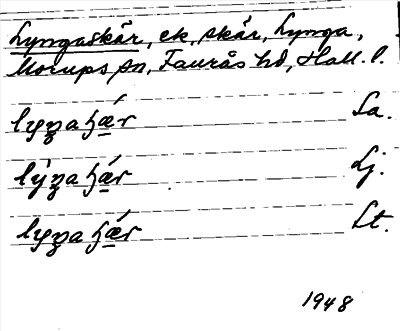 Lyngaskär, ek, skär, Lynga,
Morups sn, Faurås hd, Hall. l.
lyŋahǽr La.
lýŋahǽr Lj.
lyŋahǽr Lt.
1948